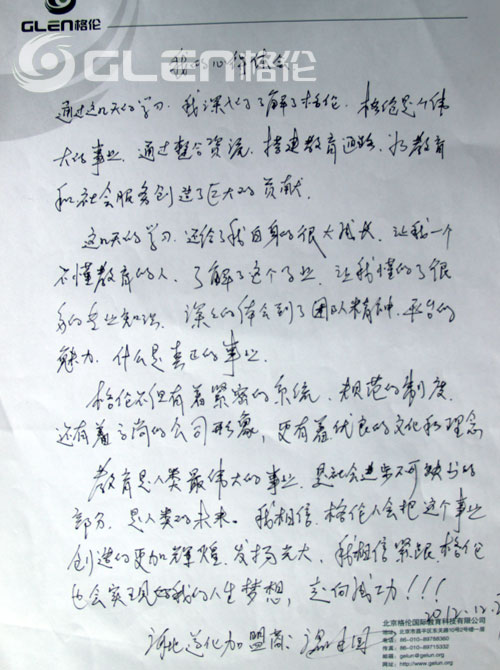 GLEN格伦
GLEN格伦
我的心得体会
通过这几天的学习，我深入的了解了格伦，格伦是个伟
大的事业，通过整合资源，搭建教育通路，为教育
和社会服务创造了巨大的贡献。
这几天的学习，还给了我自身的很大成长，让我一个
不懂教育的人，了解了这个行业，让我懂的了很
多的专业知识，深深的体会到了团队精神，平台的
魅力，什么是真正的事业。
格伦不但有着紧密的系统，规范的制度，
还有着高尚的公司形象，更有着优良的文化和理念
教育是人类最伟大的事业，是社会进步不可缺少的
部分，是人类的未来。我相信，格伦人会把这个事业
创造的更加辉煌，发扬光大，我相信紧跟格伦
也会实现好我的人生梦想，走向成功！！！
2012.12.
河北 加盟商：
北京格伦国际教育科技有限公司
电话：86-010-89788360
传真：86-010-89715332
邮箱：gelun@gelun.org
网址：http://www.gelun.org